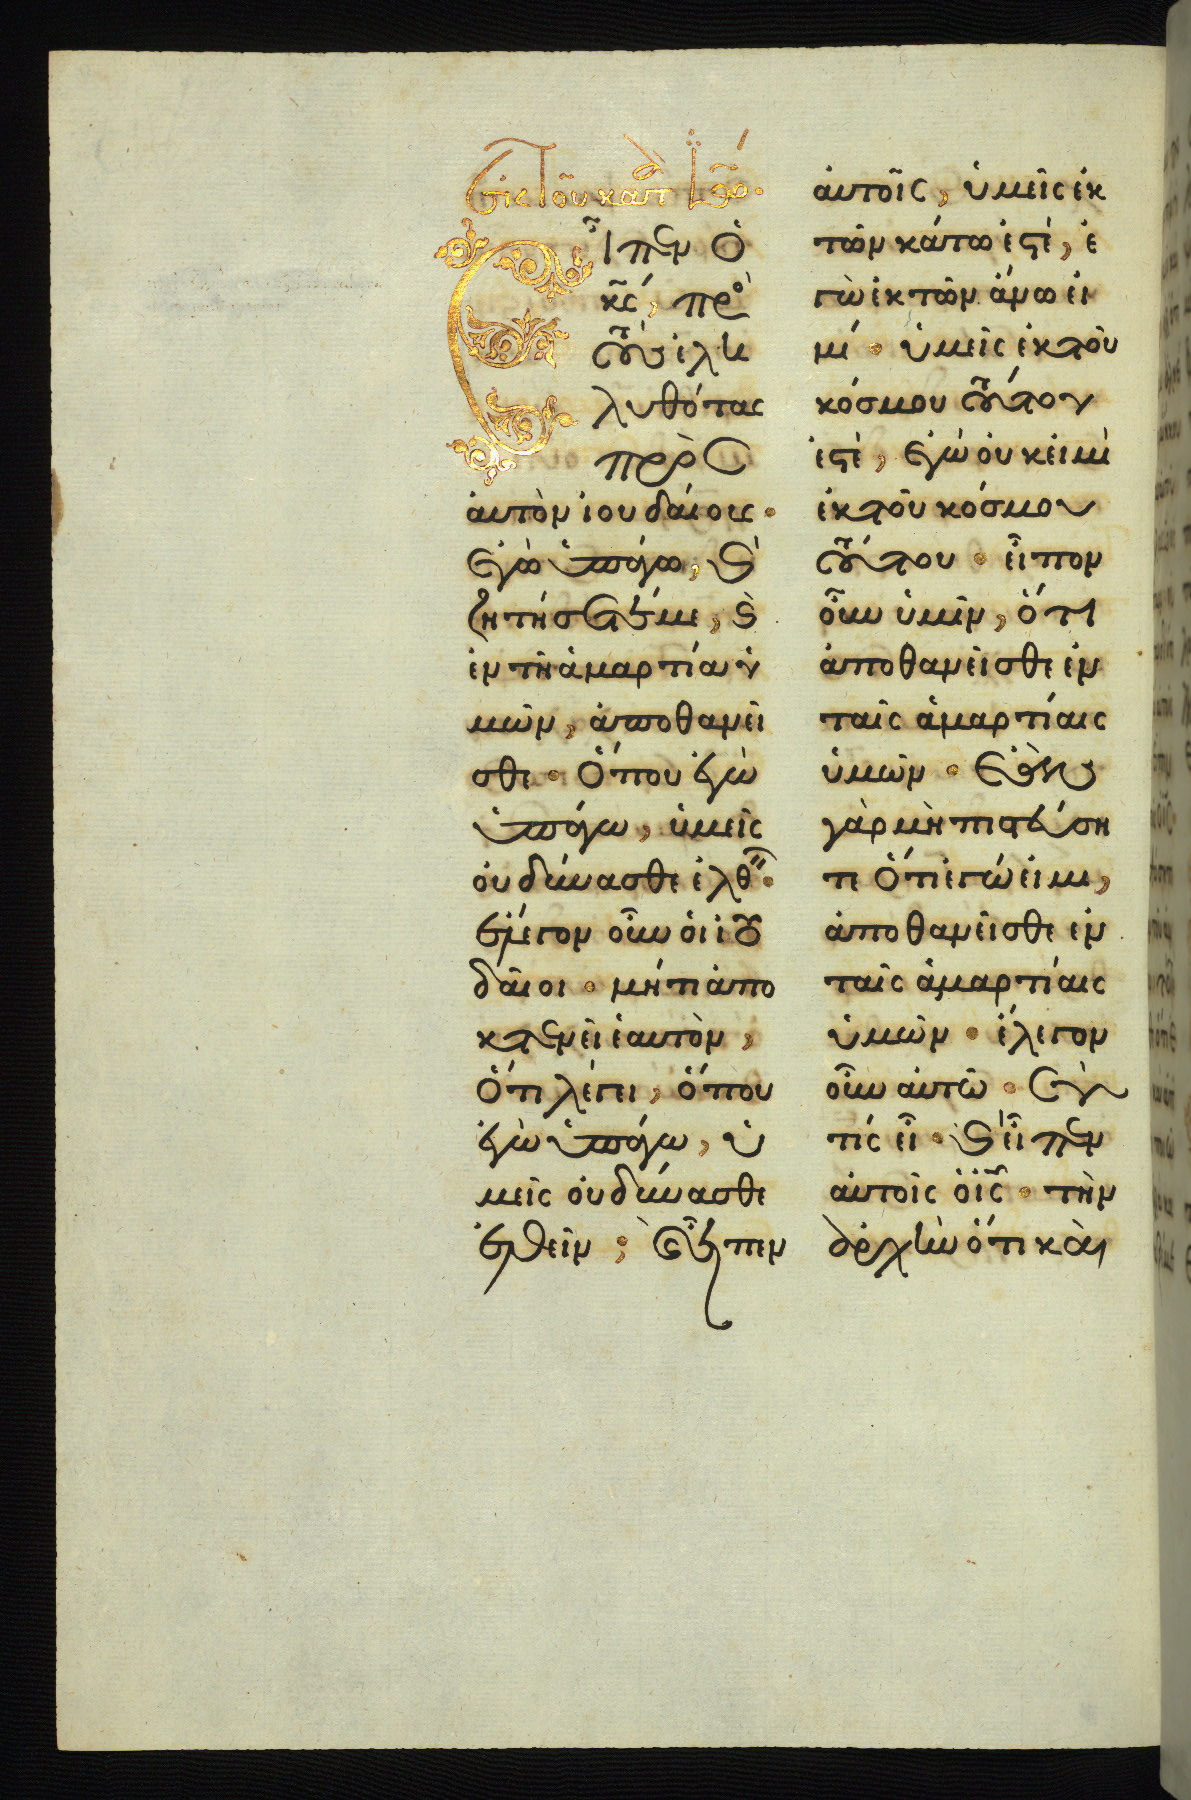 ἐκ τοῦ κατ Ἰω
Εἶπεν ὁ
κς, πρὸ
τοὺς ἐλη
λυθότας
πρὸς
ἀυτὸν ἰουδαίους·
ἐγὼ ὑπάγω, καὶ
ζητήσετέ με, καὶ
ἐν τῆ ἁμαρτία ὑ
μῶν, ἀποθανεῖ
σθε· Ὅπου ἐγὼ
ὑπάγω, ὑμεῖς
ὀυ δύνασθε ἐλθεῖν·
ἔλεγον οὖν ὁι ἰου
δαῖοι· μήτι ἀπο
κτενεῖ ἑαυτὸν,
Ὅτι λέγει, ὅπου
ἐγὼ ὑπάγω, ὑ
μεῖς ὀυ δύνασθε
ἐλθεῖν; καὶ εἶπεν
ἀυτοῖς, ὑμεῖς ἐκ
τῶν κάτω ἐστέ, ἐ
γὼ ἐκ τῶν ἄνω εἰ
μί· ὑμεῖς ἐκ τοῦ
κόσμου τούτου
ἐστέ, ἐγὼ ὀυκ εἰμὶ
ἐκ τοῦ κόσμου
τούτου· εἶπον
οὖν ὑμῖν, ὅτι
ἀποθανεῖσθε ἐν
ταῖς ἁμαρτίαις
ὑμῶν· Ἐὰν
γὰρ μὴ πιστεύση
τε Ὅτι ἐγώ εἰμι,
ἀποθανεῖσθε ἐν
ταῖς ἁμαρτίαις
ὑμῶν· ἔλεγον
οὖν ἀυτῶ· Σὺ
τίς εἶ· καὶ εἶπεν
ἀυτοῖς ὁ ις· τὴν
ἀρχὴν ὅτι καὶ